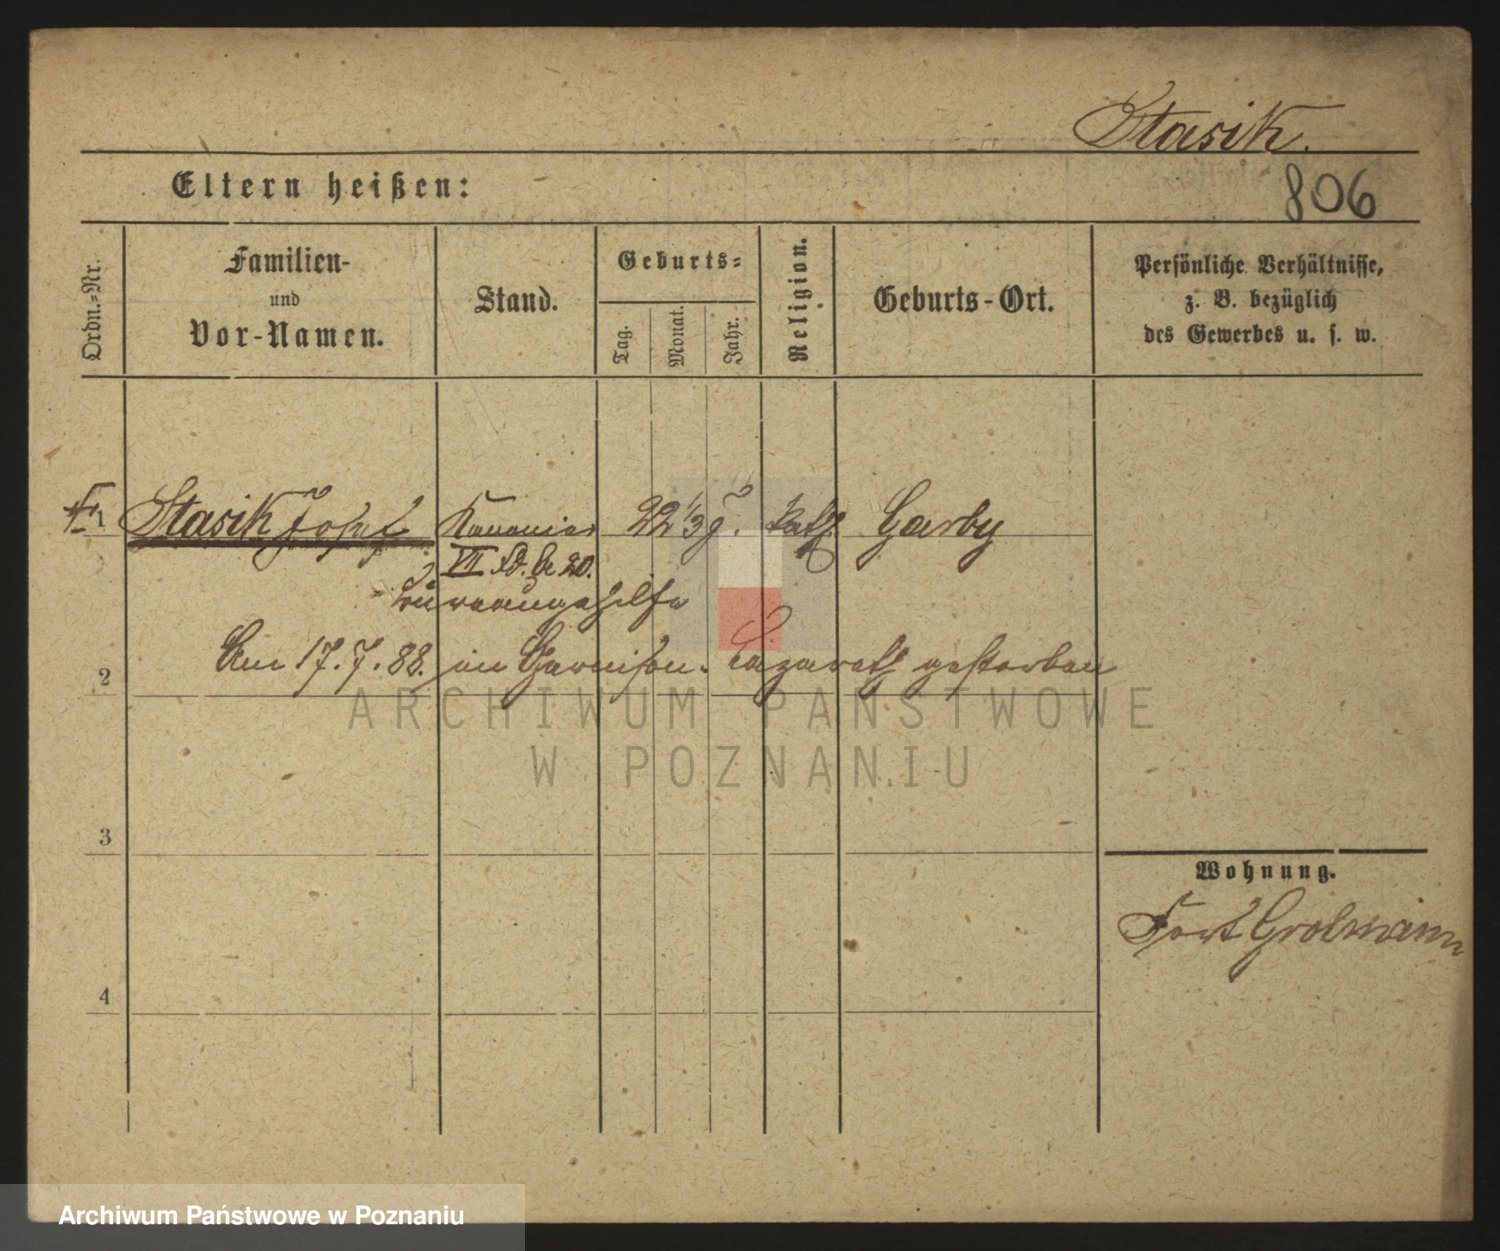 Stasik.
Eltern heißen:
806
Ordn.=Nr.
Familien-
und
Vor-Namen.
Stand.
Geburts=
Tag.
Monat.
Jahr.
Religion.
Geburts-Ort.
Persönliche Verhältnisse,
z. B. bezüglich
des Gewerbes u. s. w.
1 Stasik Josef Kanonier 22 1/3 J. kath Garby
VII Ld. Be 20.
Büreaugehilfe
2 Am 17.7.88. im Garnison-Lazareth gestorben
ARCHIWUM PAŃSTWOWE
W POZNANIU
3
Wohnung.
Fort Grolmann
4
Archiwum Państwowe w Poznaniu